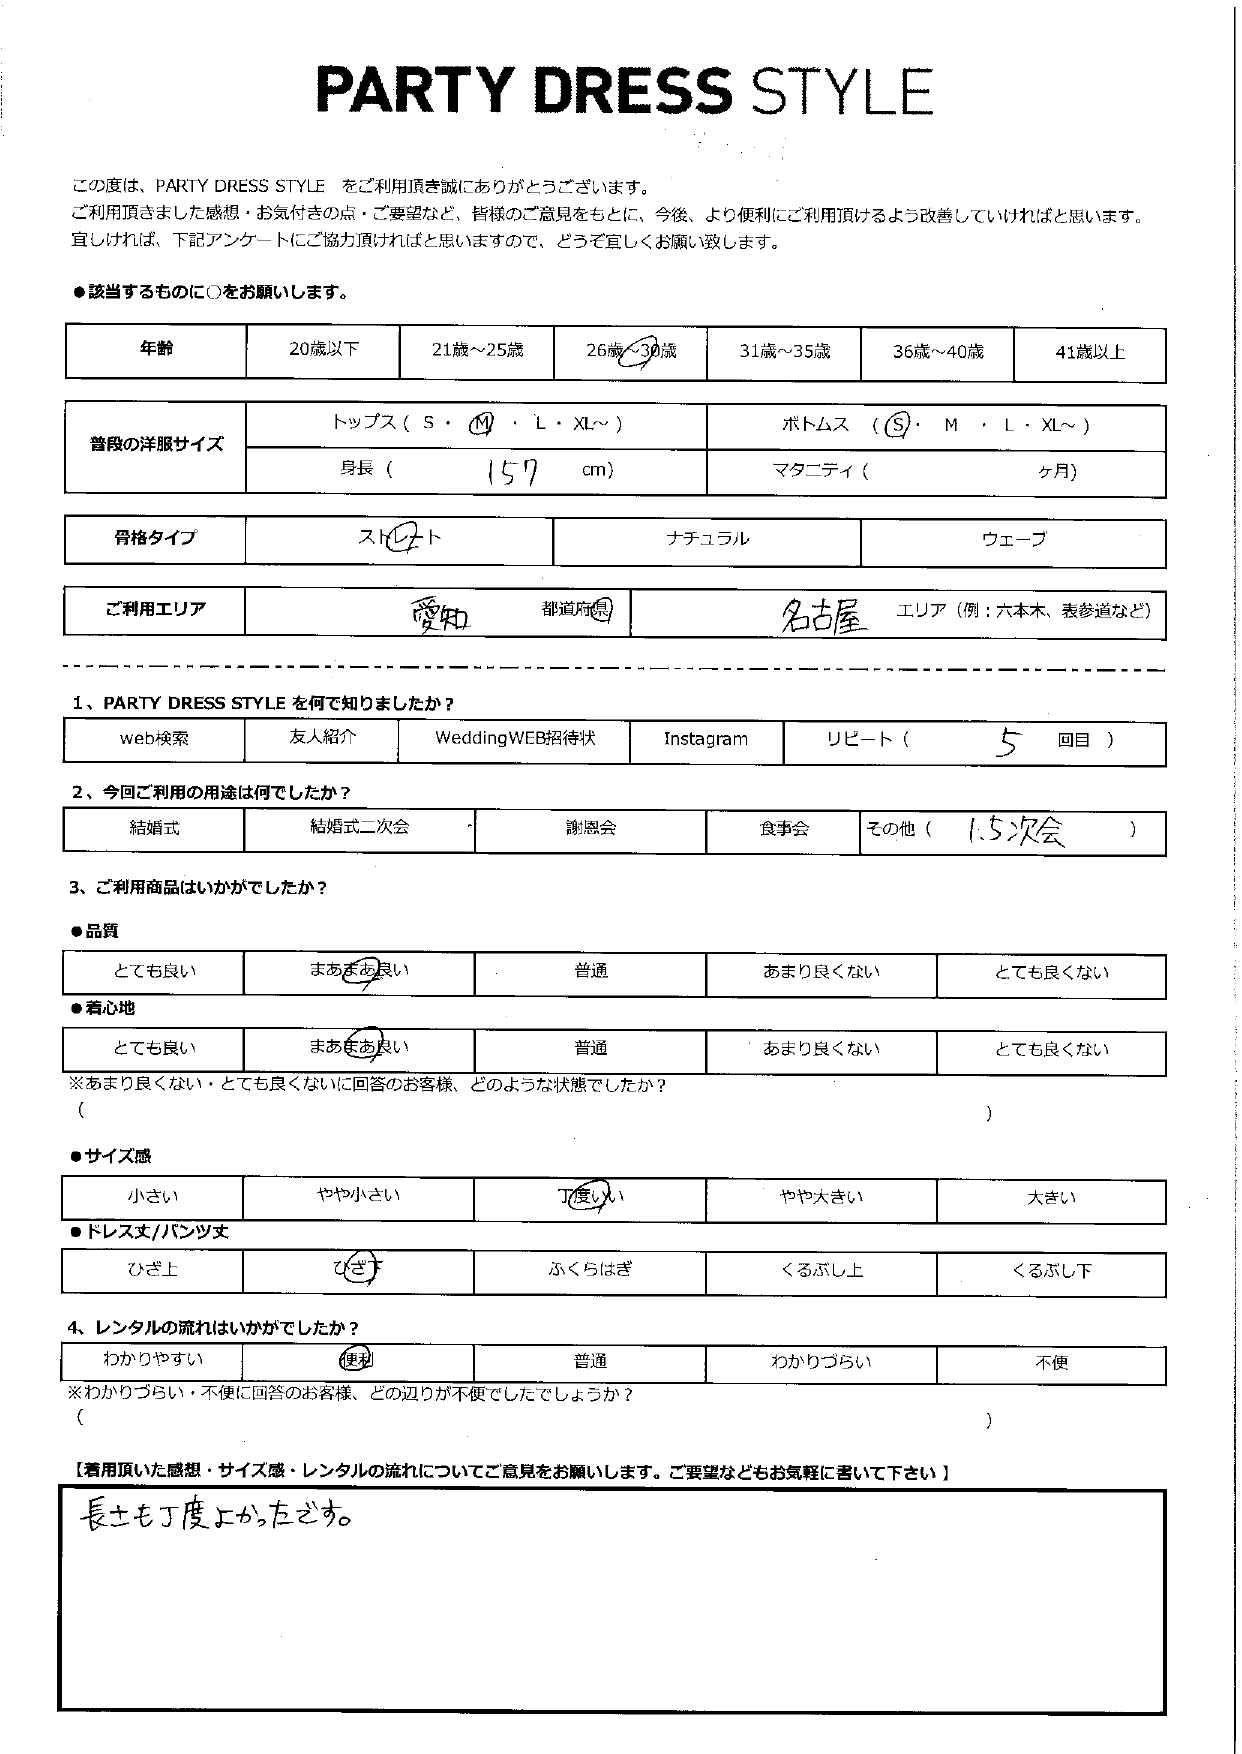 PARTY DRESS STYLE
この度は、PARTY DRESS STYLE をご利用頂き誠にありがとうございます。
ご利用頂きました感想・お気付きの点・ご要望など、皆様のご意見をもとに、今後、より便利にご利用頂けるよう改善していければと思います。
宜しければ、下記アンケートにご協力頂ければと思いますので、どうぞ宜しくお願い致します。
●該当するものに○をお願いします。
年齢 20歳以下 21歳～25歳 26歳～30歳 31歳～35歳 36歳～40歳 41歳以上
普段の洋服サイズ トップス ( S ・ M ・ L ・ XL～ ) ボトムス ( S ・ M ・ L ・ XL～ )
身長 ( 157 cm) マタニティ ( ヶ月)
骨格タイプ ストレート ナチュラル ウェーブ
ご利用エリア 愛知 都道府県 名古屋 エリア (例：六本木、表参道など)
1、PARTY DRESS STYLE を何で知りましたか？
web検索 友人紹介 WeddingWEB招待状 Instagram リピート ( 5 回目 )
2、今回ご利用の用途は何でしたか？
結婚式 結婚式二次会 謝恩会 食事会 その他 ( 1.5次会 )
3、ご利用商品はいかがでしたか？
●品質
とても良い まあまあ良い 普通 あまり良くない とても良くない
●着心地
とても良い まあまあ良い 普通 あまり良くない とても良くない
※あまり良くない・とても良くないに回答のお客様、どのような状態でしたか？
( )
●サイズ感
小さい やや小さい 丁度いい やや大きい 大きい
●ドレス丈/パンツ丈
ひざ上 ひざ下 ふくらはぎ くるぶし上 くるぶし下
4、レンタルの流れはいかがでしたか？
わかりやすい 便利 普通 わかりづらい 不便
※わかりづらい・不便に回答のお客様、どの辺りが不便でしたでしょうか？
( )
【着用頂いた感想・サイズ感・レンタルの流れについてご意見をお願いします。ご要望などもお気軽に書いて下さい】
長さも丁度よかったです。